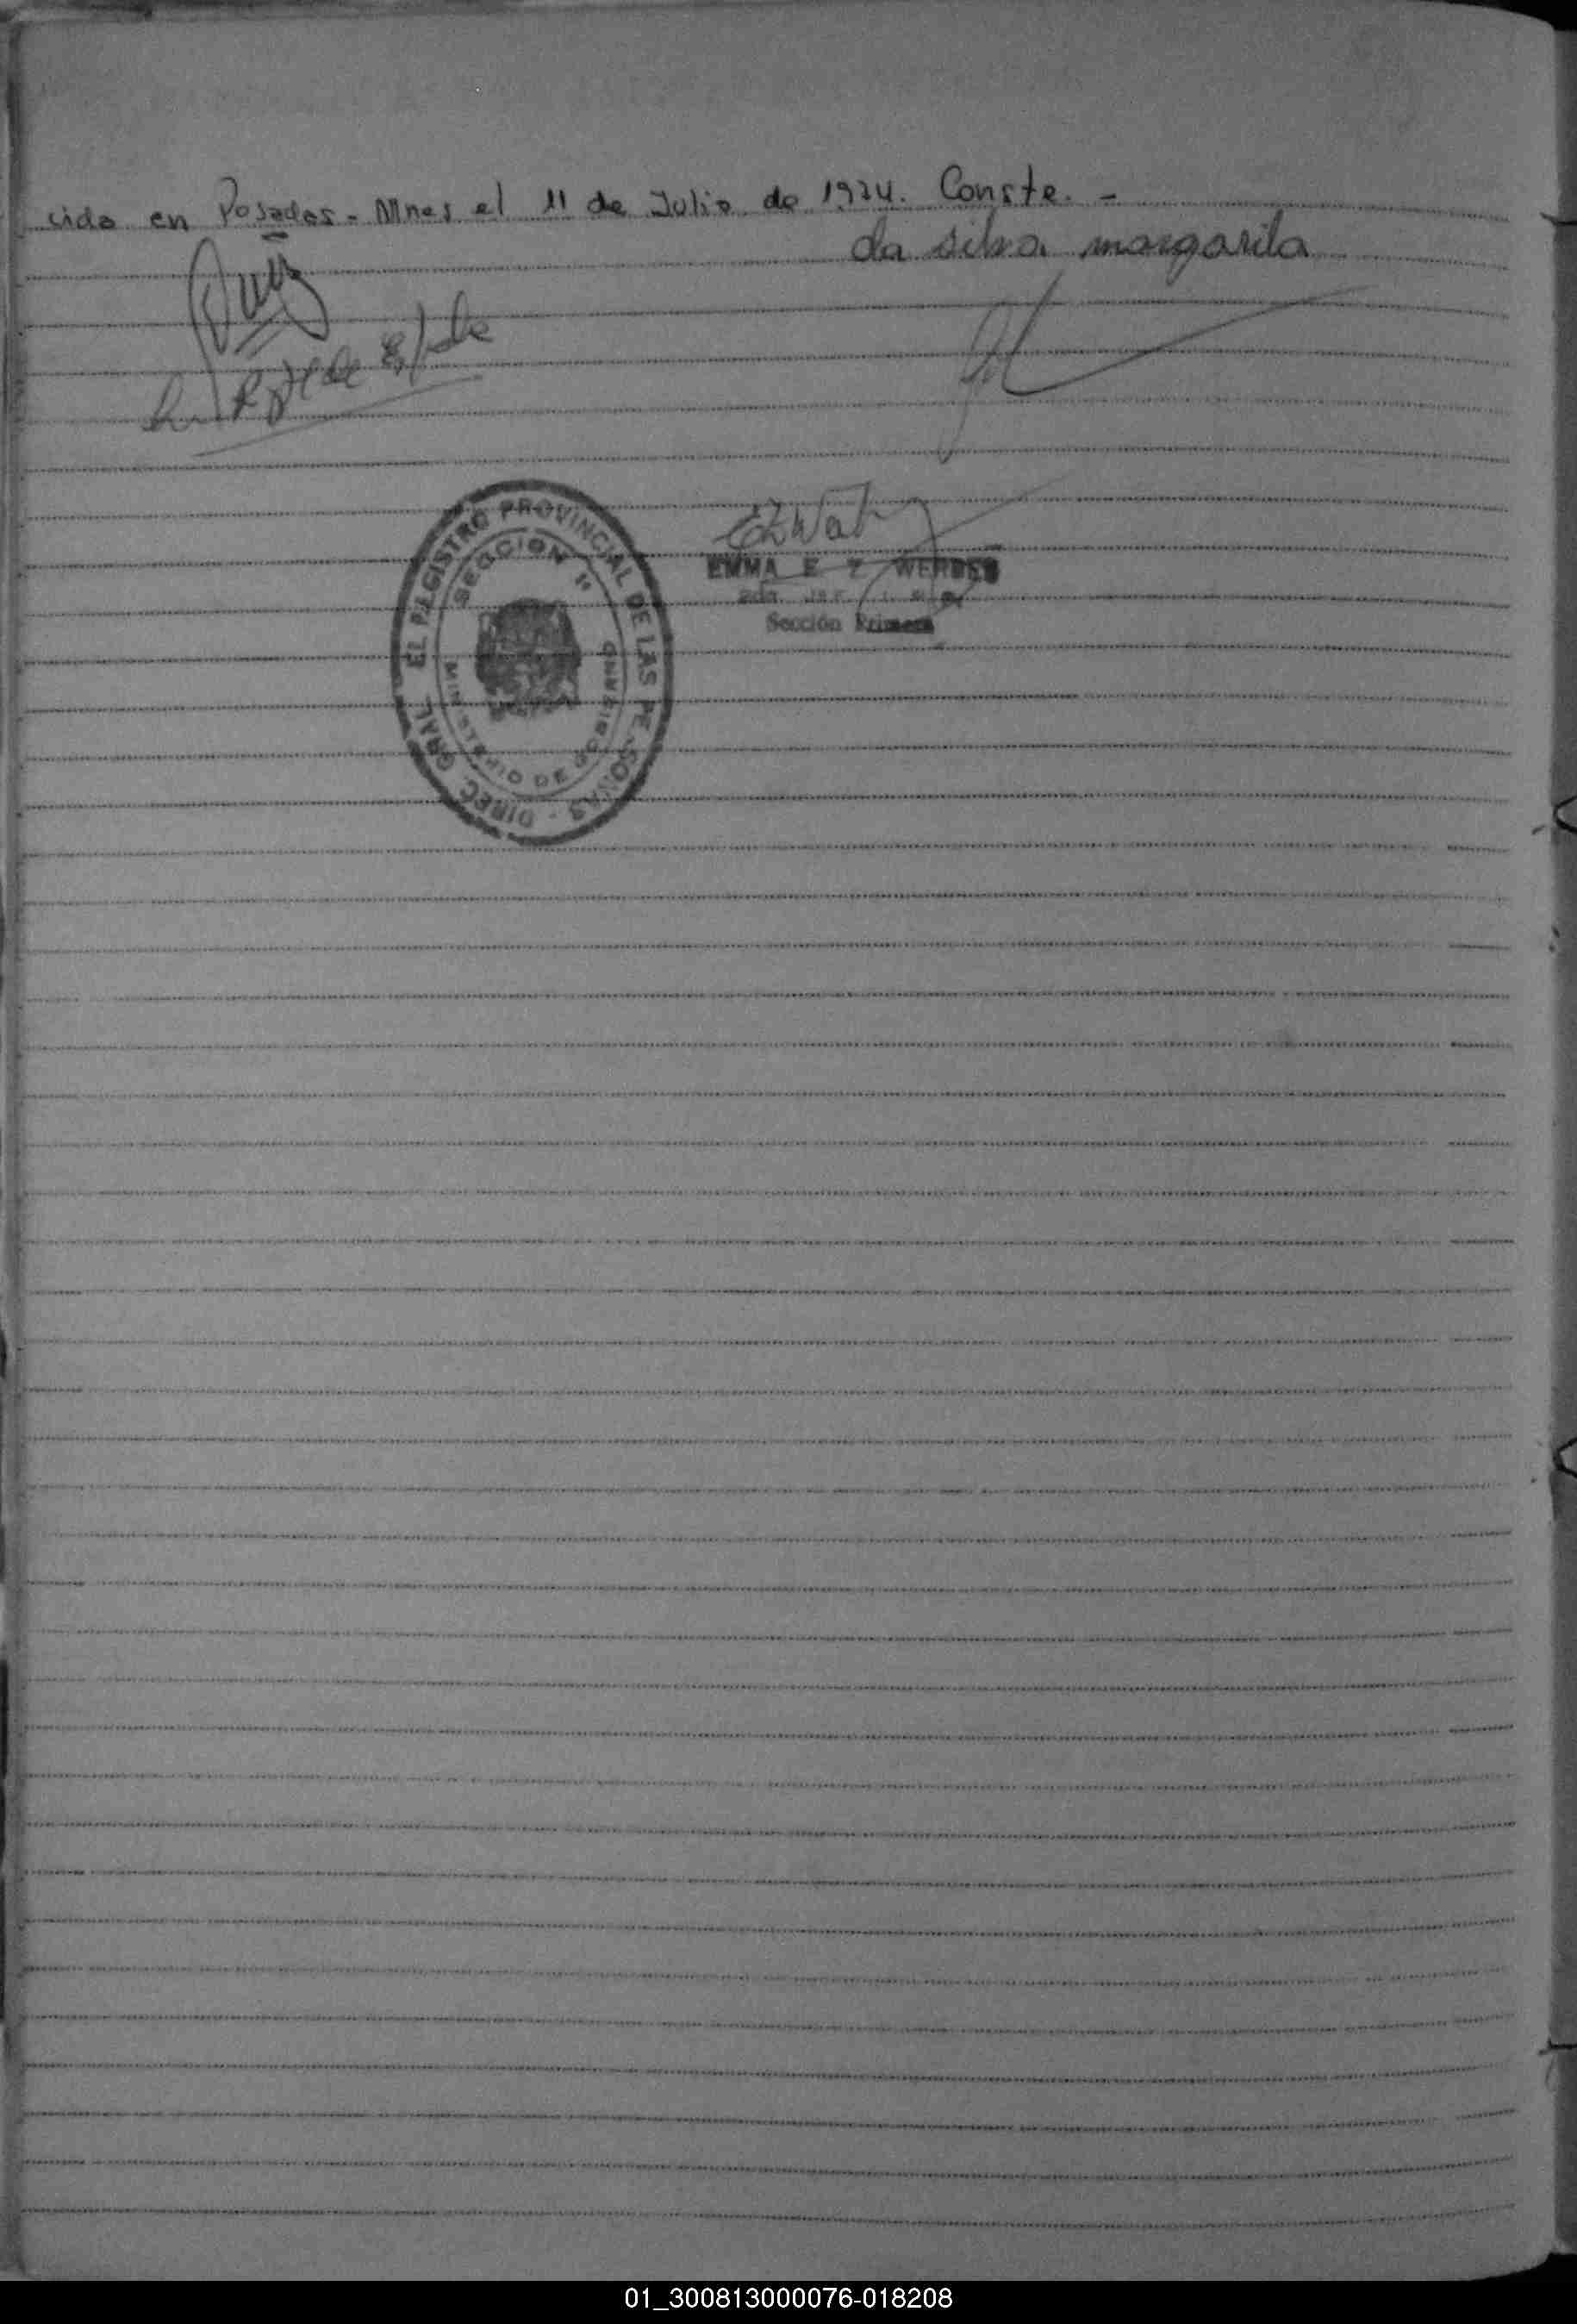 cido en Posadas - Mnes el 11 de Julio de 1974. Conste. -
da silva margarita
DIREC. GRAL. EL REGISTRO PROVINCIAL DE LAS PERSONAS -
SECCION 1ª
MINISTERIO DE GOBIERNO
EMMA E Z WERDES
Sección Primera
01_300813000076-018208